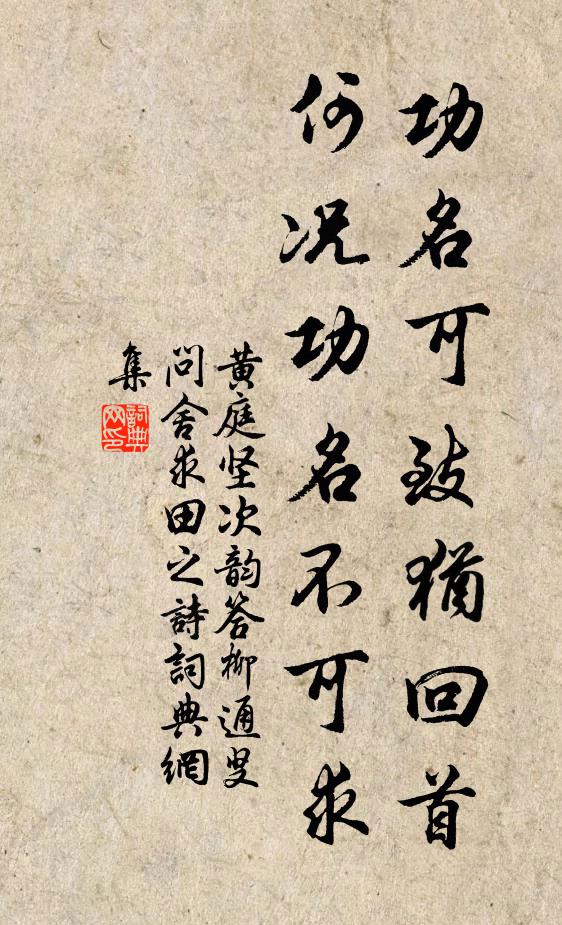 功名可致猶回首
何况功名不可求
黄庭坚次韵答柳通叟
问舍求田之詩詞典網
集
詞典
网印